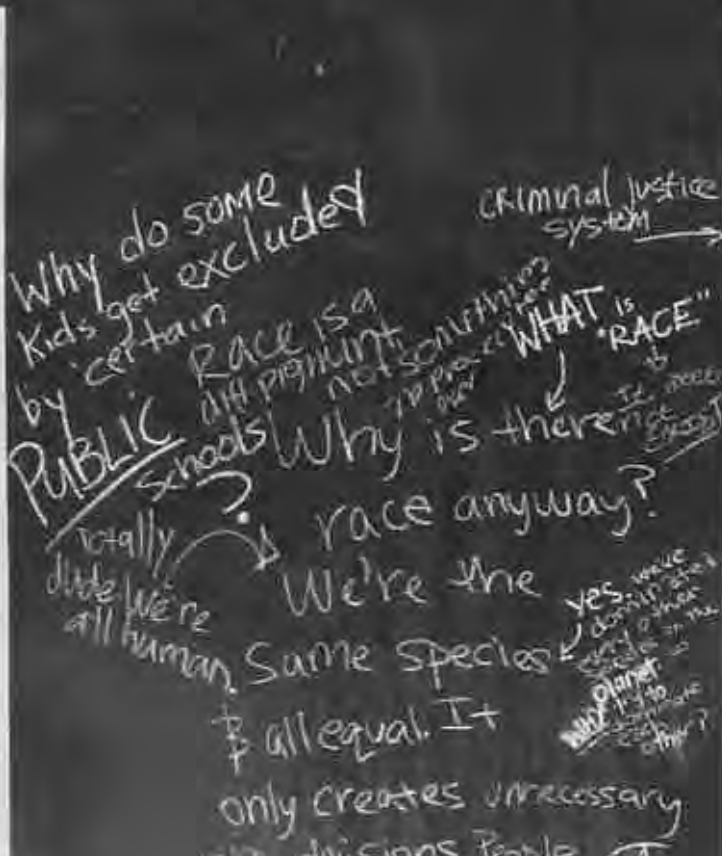 Why do some
Kids get excluded
by certain
PUBLIC
schools
?
criminal justice
system
Race is a
diff pigment,
not something
WHAT is
"RACE"
Why is there
race anyway?
We're the
Same species
& all equal. It
only creates unnecessary
divisions People
totally
dude We're
all human.
yes. we've
dominated
every other
species in the
planet.
WHY try to
dominate
each
other?